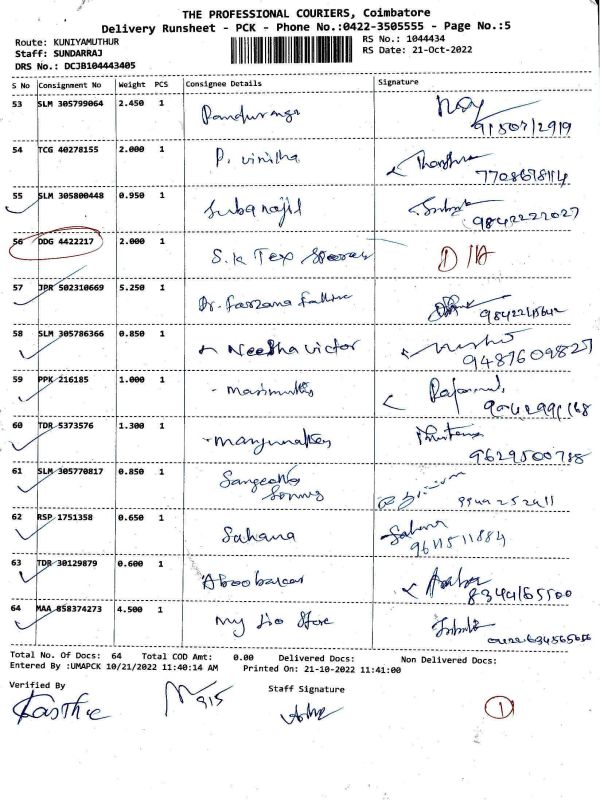 THE PROFESSIONAL COURIERS, Coimbatore
Delivery Runsheet - PCK - Phone No.:0422-3505555 - Page No.:5
Route: KUNIYAMUTHUR
Staff: SUNDARRAJ
DRS No.: DCJB104443405
RS No.: 1044434
RS Date: 21-Oct-2022
S No Consignment No Weight PCS Consignee Details Signature
53 SLM 305799064 2.450 1
54 TCG 40278155 2.000 1 P. vinitha
55 SLM 305800448 0.950 1
9842222027
56 DDG 4422217 2.000 1 S.K Tex
57 JPR 502310669 5.250 1 Dr. Farzana
58 SLM 305786366 0.850 1 Neetha victor
9487609827
59 PPK 216185 1.000 1 - Marimuthu
60 TDR 5373576 1.300 1
9629500788
61 SLM 305770817 0.850 1 Sangeetha
62 RSP 1751358 0.650 1 Sahana Sahana
9611511884
63 TDR 30129879 0.600 1
8344165500
64 MAA 858374273 4.500 1 My Jio Store
Total No. Of Docs: 64 Total COD Amt: 0.00 Delivered Docs: Non Delivered Docs:
Entered By :UMAPCK 10/21/2022 11:40:14 AM Printed On: 21-10-2022 11:41:00
Verified By
Staff Signature
915
1